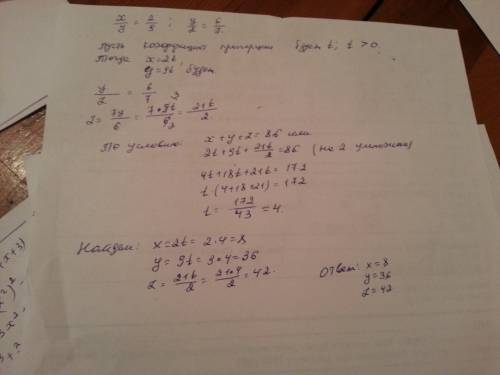 x/y = 2/9 ; y/z = 6/7
Пусть коэффициент пропорции будет t; t > 0.
Тогда x=2t
y=9t будет
y/z = 6/7
z = 7y/6 = 7·9t/6 = 21t/2
По условию x+y+z=86 или
2t+9t+21t/2=86 (на 2 умножаем)
4t+18t+21t=172
t(4+18+21)=172
t=172/43=4.
Найдем: x=2t=2·4=8
y=9t=9·4=36
z=21t/2=21·4/2=42.
Ответ: x=8
y=36
z=42